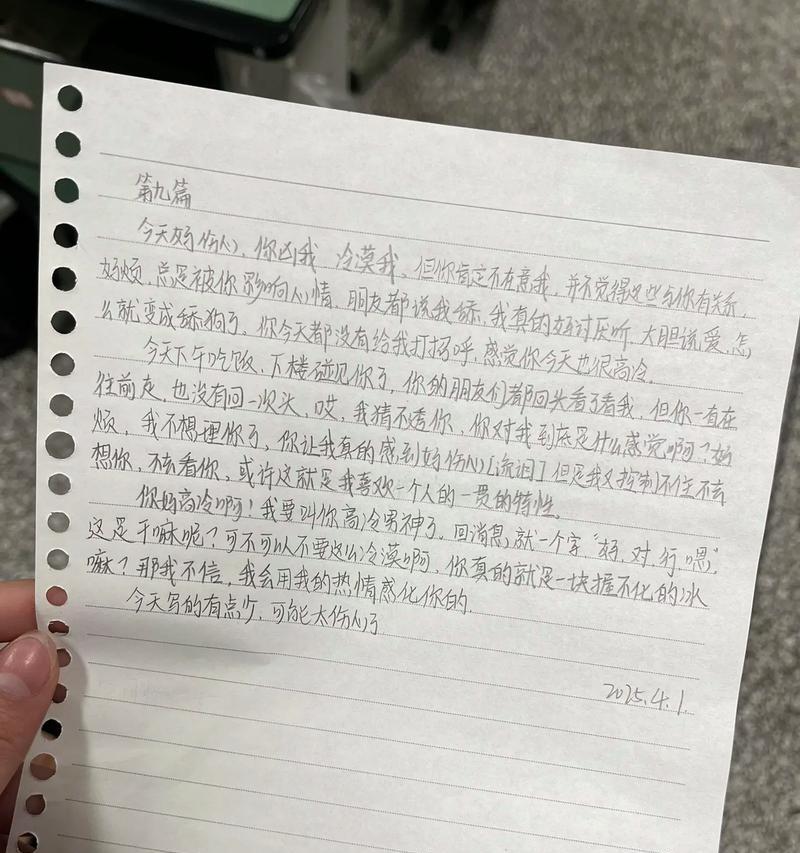 第九篇
今天好伤心，你凶我 冷漠我，但你肯定不在意我，并不觉得这些与你有关系，
好烦，总是被你影响心情，朋友都说我舔，我真的好讨厌听，大胆说爱，怎
么就变成舔狗了，你今天都没有给我打招呼，感觉你今天也很高冷，
今天下午吃饭，下楼碰见你了，你的朋友们都回头看了看我，但你一直在
往前走，也没有回一次头，哎，我猜不透你，你对我到底是什么感觉啊？好
烦，我不想理你了，你让我真的感到好伤心[流泪]但是我又控制不住不去
想你，不去看你，或许这就是我喜欢一个人的一贯的特性。
你好高冷啊！我要叫你高冷男神了，回消息，就一个字“好，对，行，嗯”，
这是干嘛呢？可不可以不要这么冷漠啊，你真的就是一块握不化的冰
嘛？那我不信，我会用我的热情感化你的，
今天写的有点少，可能太伤心了
2025.4.1.